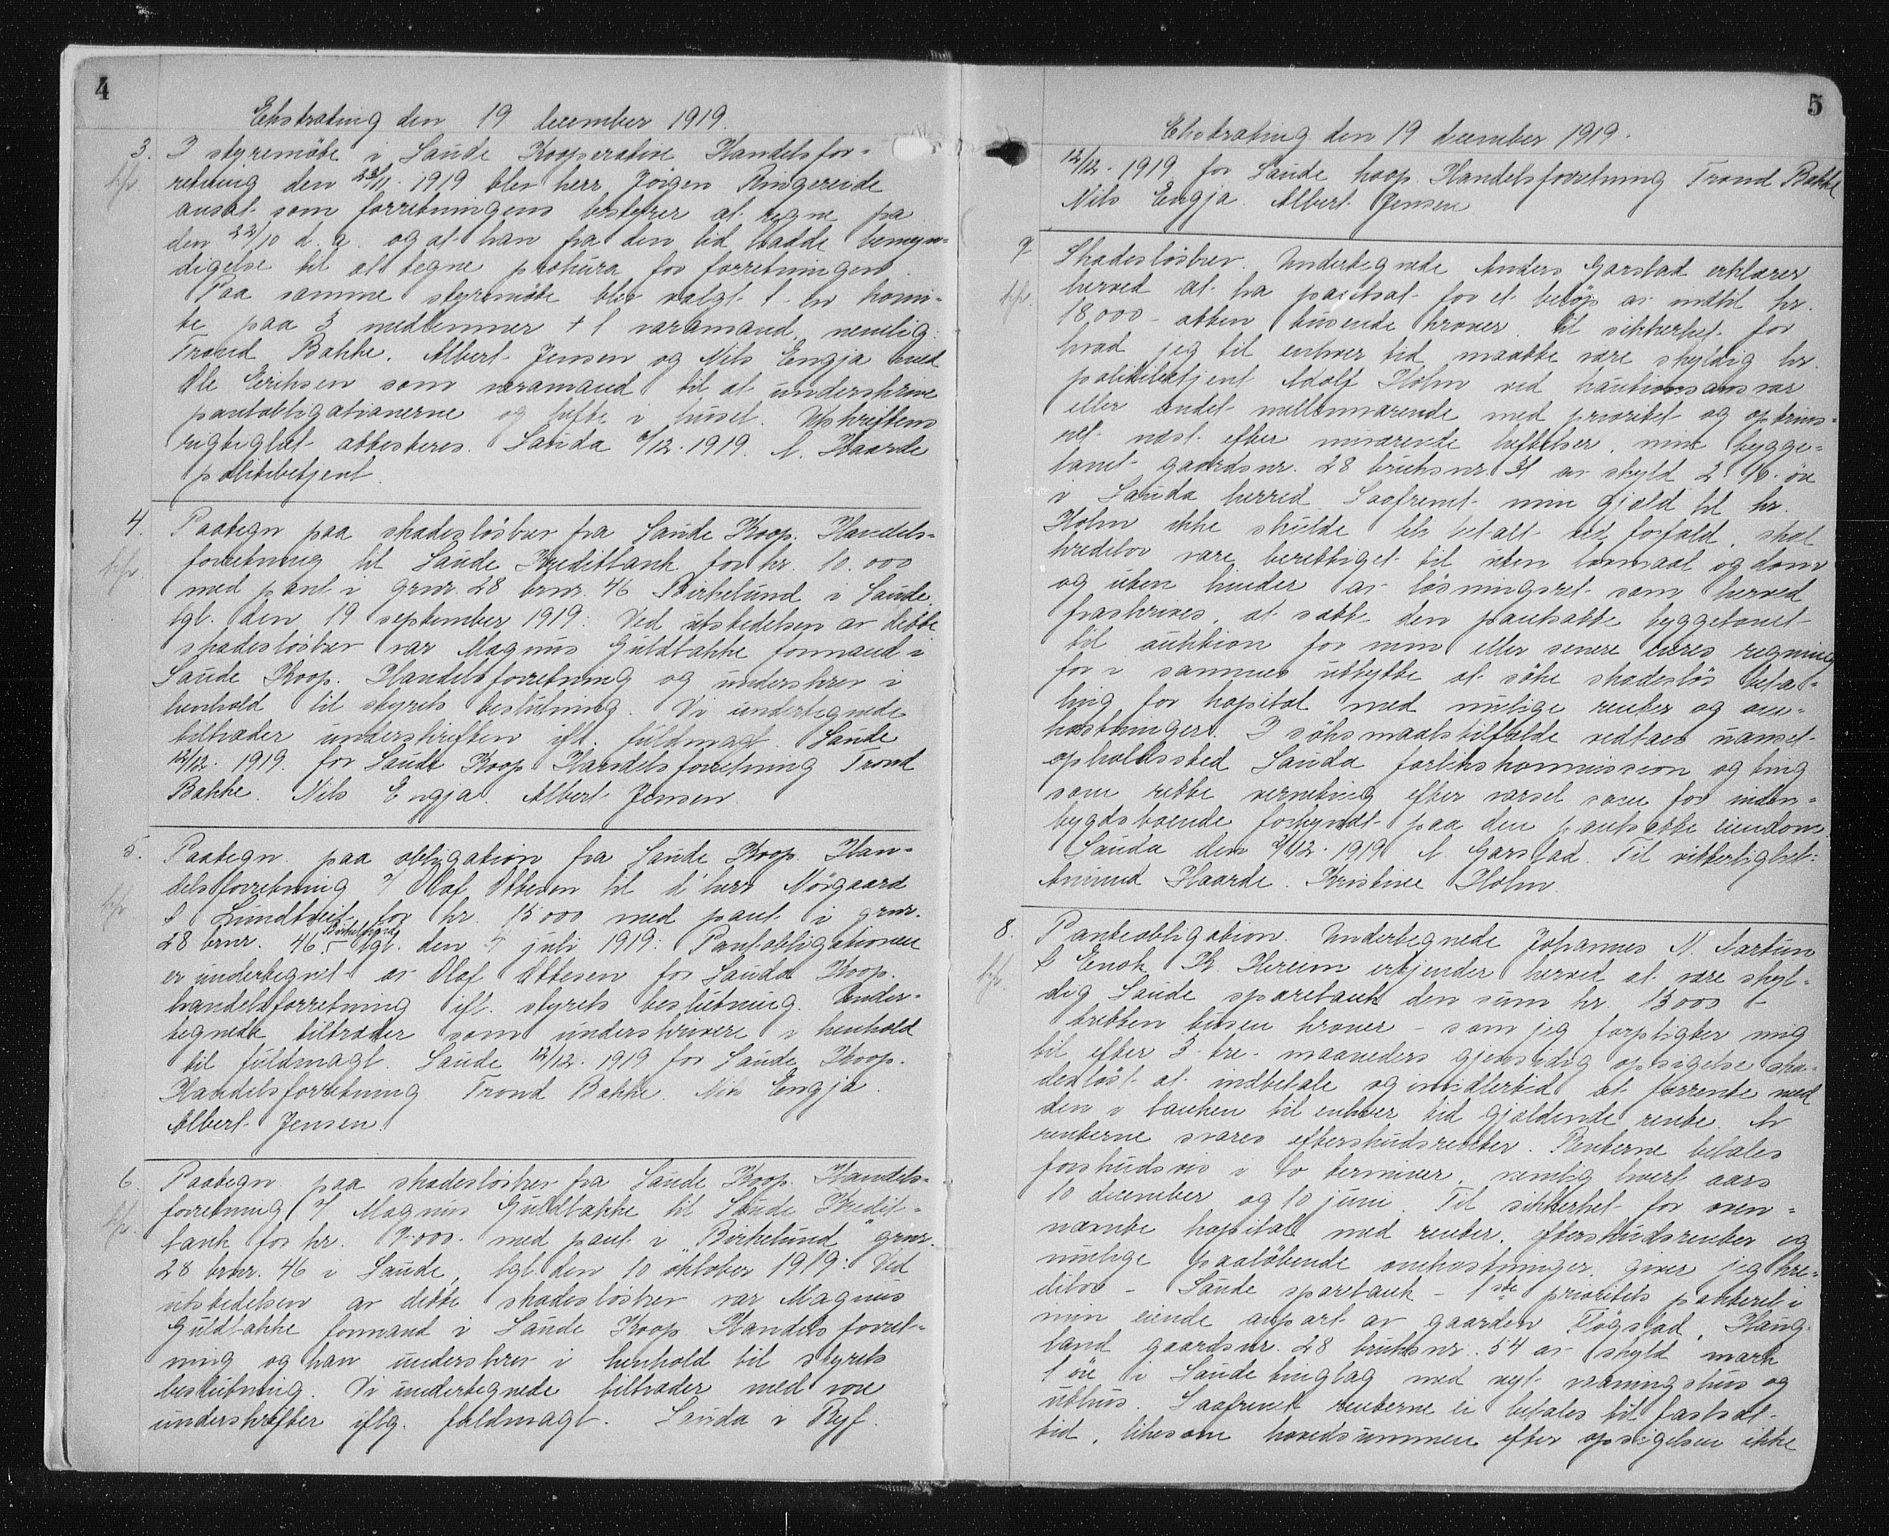 4
Ekstrating den 19 december 1919.
3. I styremöte i Saude Kooperative Handelsfor-
retning den 23/11 1919 blev herr Jörgen Ringereide
ansat som forretningens bestyrer at regne fra
den 22/10 d. a. og at han fra den tid hadde bemyn-
digelse til at tegne prokura for forretningen.
Paa samme styremöte blev valgt 1 en komi-
te paa 3 medlemmer + 1 varamand, nemlig:
Trond Bakke, Albert Jensen og Nils Engja med
Ole Eriksen som varamand til at underskrive
pantobligationerne og hefte i huset. Utskriftens
rigtighet attesteres. Sauda /12. 1919. A. Haarde
politibetjent.
4. Paategn paa skadeslösbrev fra Saude Koop. Handels-
forretning til Saude Kreditbank for kr. 10.000
med pant i grnr. 28 brnr. 46 Birkelund i Saude,
tgl. den 19 september 1919: Ved utstedelsen av dette
skadeslösbrev var Magnus Guldbakke formand i
Saude Koop. Handelsforretning og underskrev i
henhold til styrets beslutning. Vi undertegnede
tiltræder underskriften ifl. fuldmagt. Saude
12/12. 1919. for Saude Koop Handelsforretning Trond
Bakke. Nils Engja. Albert Jensen.
5. Paategn. paa obligation fra Saude Koop. Han-
delsforretning v/ Olaf Ottesen til d'herr Nörgaard
& Lundtveit for kr. 15000 med pant i grnr.
28 brnr. 46 Birkelund tgl. den juli 1919: Pantobligationen
er undertegnet av Olaf Ottesen for Sauda Koop.
handelsforretning ifl. styrets beslutning. Under-
tegnede tiltræder som underskrivere i henhold
til fuldmagt. Saude 12/12. 1919 for Saude Koop.
Handelsforretning Trond Bakke. Nils Engja.
Albert Jensen.
6. Paategn. paa skadeslösbrev fra Saude Koop. Handels-
forretning v/ Magnus Guldbakke til Saude Kredit-
bank for kr. 7.000 med pant i "Birkelund" grnr.
28 brnr. 46 i Saude, tgl. den 10 oktober 1919: Ved
utstedelsen av dette skadeslösbrev var Magnus
Guldbakke formand i Saude Koop. Handelsforret-
ning og han underskrev i henhold til styrets
beslutning. Vi undertegnede tiltræder med vore
underskrifter iflg. fuldmagt. Sauda i Ryf.
5
Ekstrating den 19 december 1919.
12/12. 1919 for Saude koop. Handelsforretning Trond Bakke
Nils Engja. Albert Jensen
7. Skadeslösbrev. Undertegnede Anders Garstad erklærer
herved at ha pantsat for et belöp av indtil kr.
18,000 - atten tusende kroner til sikkerhet for
hvad jeg til enhver tid maatte være skyldig hr.
politibetjent Adolf Holm ved kautionsansvar
eller andet mellemværende med prioritet og optrins-
ret næst efter nuværende heftelser, min bygge-
tomt gaardsnr. 28 bruksnr. 31 av skyld 2 16 öre
i Sauda herred. Saafremt min gjæld til hr.
Holm ikke skulde bli betalt ved forfald, skal
kreditor være berettiget til uten lovmaal og dom
og uten hinder av lösningsret som herved
fraskrives, at sætte den pantsatte byggetomt
til auktion for min eller senere eieres regning
for i sammes utbytte at söke skadeslös beta-
ling for kapital med mulige renter og om-
kostninger. I söksmaalstilfælde vedtaes uanset
opholdssted Sauda forlikskommission og ting
som rette verneting efter varsel som for inden-
bygdsboende forkyndt paa den pantsatte eiendom
Sauda den /12. 1919 A. Garstad. Til vitterlighet:
Amund Haarde. Kristine Holm.
8. Panteobligation. Undertegnede Johannes N. Aartun
& Enok K Hereim erkjender herved at være skyl-
dig Saude sparebank den sum kr. 13000 -
tretten tusen kroner - som jeg forpligter mig
til efter 3 tre maaneders gjensidig opsigelse ska-
deslöst at indbetale og imidlertid at forrente med
den i banken til enhver tid gjældende rente. Av
renterne svares efterskudsrenter. Renterne betales
forskudsvis i to terminer, nemlig hvert aars
10 december og 10 juni. Til sikkerhet for oven-
nævnte kapital med renter, efterskudsrenter og
mulige paalöbende omkostninger, giver jeg kre-
ditor - Saude sparebank - 1ste prioritets panteret i
min eiende anpart av gaarden Fögstad, Haug-
land gaardsnr. 28 bruksnr. 54 av skyld mark
1 öre i Saude tinglag med nyt vaaningshus og
uthus. Saafremt renterne ei betales til fastsat
tid, likesom hovedsummen efter opsigelsen ikke